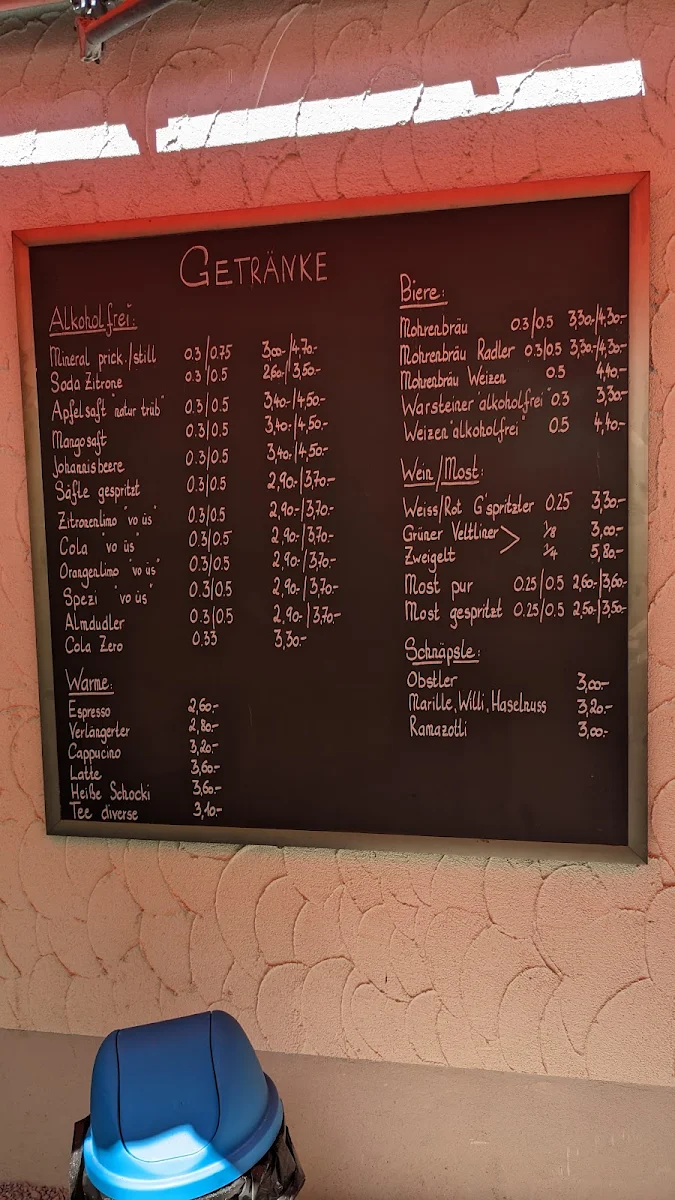 GETRÄNKE
Alkoholfrei:
Mineral prick./still 0.3/0.75 3,00-/4,70.-
Soda Zitrone 0.3/0.5 2,60-/3,50.-
Apfelsaft "natur trüb" 0.3/0.5 3,40-/4,50.-
Mangosaft 0.3/0.5 3,40-/4,50.-
Johannisbeere 0.3/0.5 3,40-/4,50.-
Säftle gespritzt 0.3/0.5 2,90.-/3,70.-
Zitronenlimo "vo üs" 0.3/0.5 2,90.-/3,70.-
Cola "vo üs" 0.3/0.5 2,90.-/3,70.-
Orangenlimo "vo üs" 0.3/0.5 2,90.-/3,70.-
Spezi "vo üs" 0.3/0.5 2,90.-/3,70.-
Almdudler 0.3/0.5 2,90.-/3,70.-
Cola Zero 0.33 3,30.-
Warme:
Espresso 2,60.-
Verlängerter 2,80.-
Cappucino 3,20.-
Latte 3,60.-
Heiße Schocki 3,60.-
Tee diverse 3,10.-
Biere:
Mohrenbräu 0.3/0.5 3,30-/4,30.-
Mohrenbräu Radler 0.3/0.5 3,30-/4,30.-
Mohrenbräu Weizen 0.5 4,40.-
Warsteiner "alkoholfrei" 0.3 3,30.-
Weizen "alkoholfrei" 0.5 4,40.-
Wein/Most:
Weiss/Rot G'spritzter 0.25 3,30.-
Grüner Veltliner > 1/8 3,00.-
Zweigelt 1/4 5,80.-
Most pur 0.25/0.5 2,60-/3,60.-
Most gespritzt 0.25/0.5 2,50-/3,50.-
Schnäpsle:
Obstler 3,00.-
Marille, Willi, Haselnuss 3,20.-
Ramazotti 3,00.-